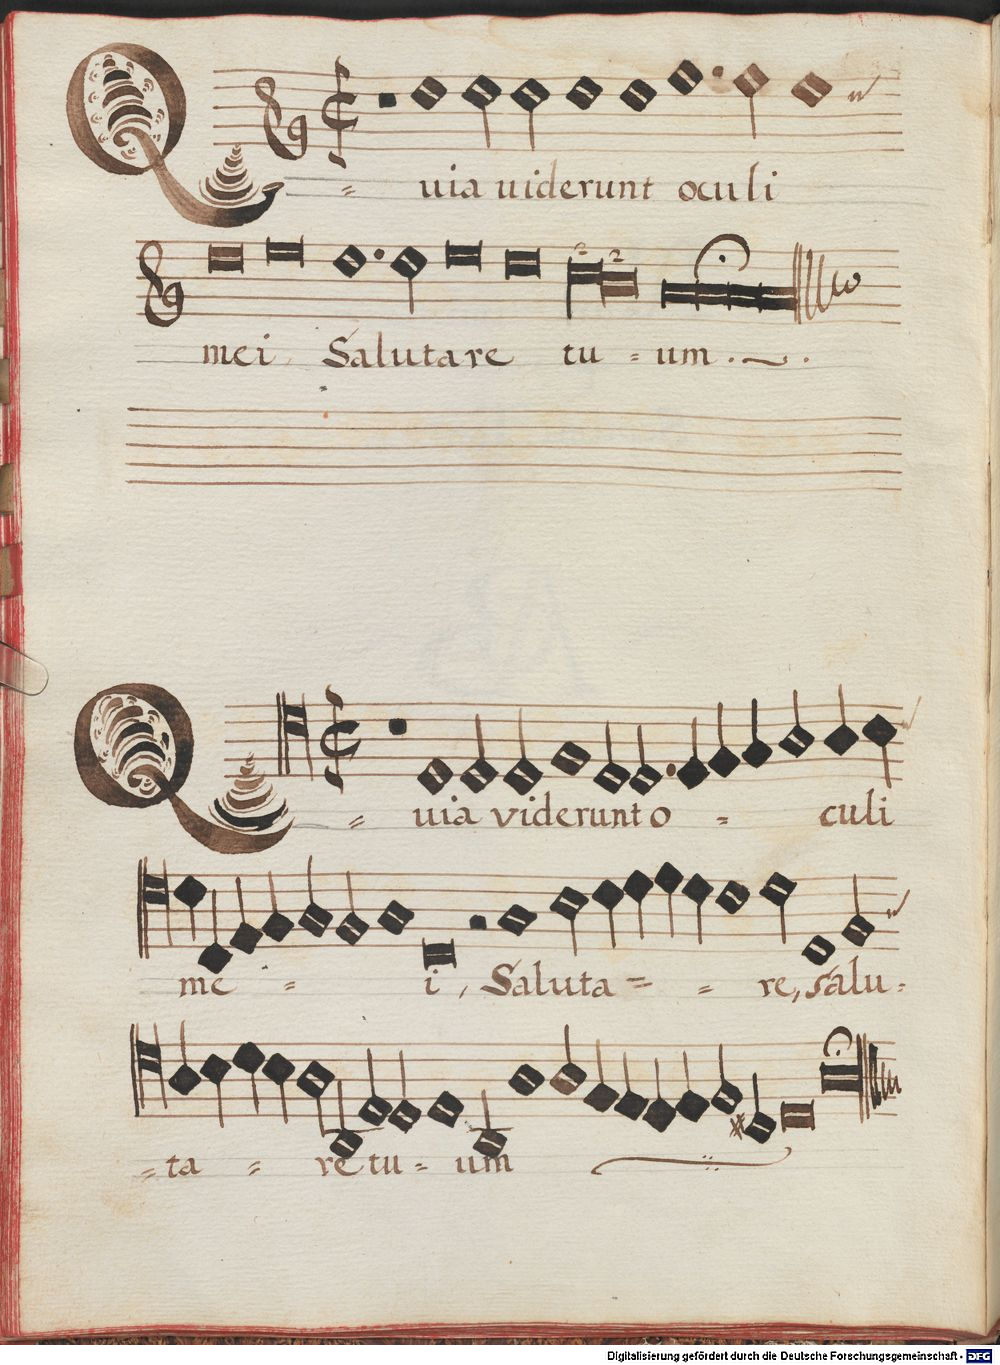 Quia uiderunt oculi
mei, Salutare tu = um.
Quia viderunt o = culi
me = i, Saluta = = re, salu =
= ta = re tu = um
Digitalisierung gefördert durch die Deutsche Forschungsgemeinschaft - DFG